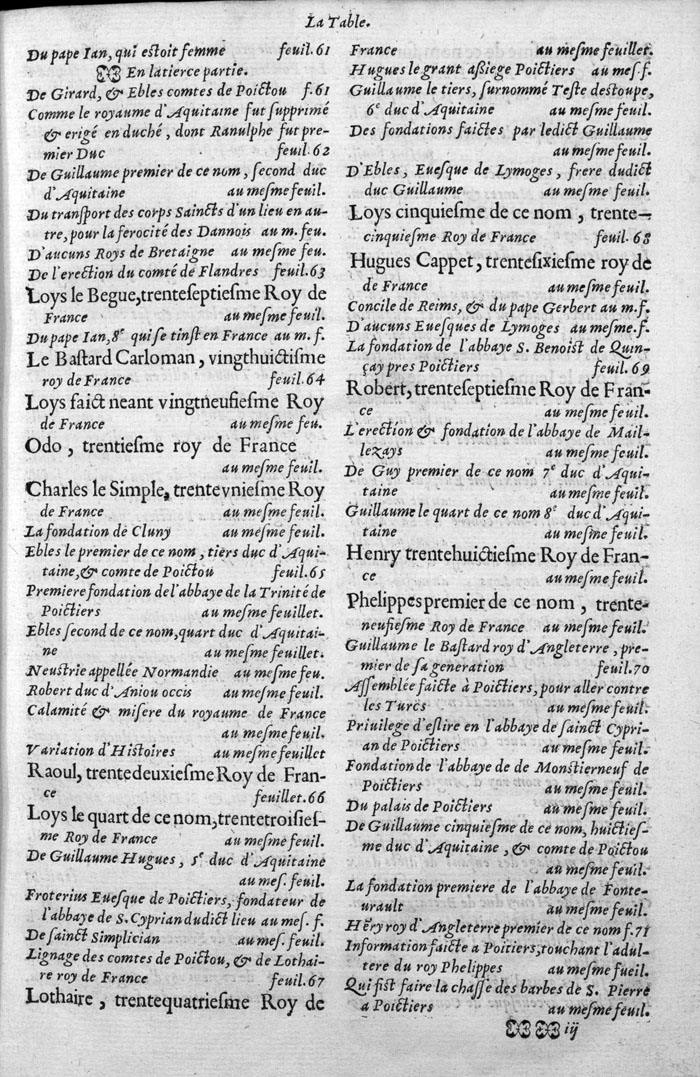 La Table.
Du pape Ian, qui eſtoit femme feuil.61
En la tierce partie.
De Girard, & Ebles comtes de Poictou f.61
Comme le royaume d'Aquitaine fut ſupprimé
& erigé en duché, dont Ranulphe fut pre-
mier Duc feuil.62
De Guillaume premier de ce nom, ſecond duc
d'Aquitaine au meſme feuil.
Du transport des corps Saincts d'un lieu en au-
tre, pour la ferocité des Dannois au m. feu.
D'aucuns Roys de Bretaigne au meſme feu.
De l'erection du comté de Flandres feuil.63
Loys le Begue, trenteſeptieſme Roy de
France au meſme feuil.
Du pape Ian, 8e qui ſe tinſt en France au m. f.
Le Baſtard Carloman, vingthuictiſme
roy de France feuil.64
Loys faict neant vingtneufieſme Roy
de France au meſme feu.
Odo, trentieſme roy de France
au meſme feuil.
Charles le Simple, trentevnieſme Roy
de France au meſme feuil.
La fondation de Cluny au meſme feuil.
Ebles le premier de ce nom, tiers duc d'Aqui-
taine, & comte de Poictou feuil.65
Premiere fondation de l'abbaye de la Trinité de
Poictiers au meſme feuillet.
Ebles ſecond de ce nom, quart duc d'Aquitai-
ne au meſme feuillet.
Neuſtrie appellée Normandie au meſme feu.
Robert duc d'Aniou occis au meſme feuil.
Calamité & miſere du royaume de France
au meſme feuil.
Variation d'Hiſtoires au meſme feuillet
Raoul, trentedeuxieſme Roy de Fran-
ce feuillet.66
Loys le quart de ce nom, trentetroiſieſ-
me Roy de France au meſme feuil.
De Guillaume Hugues, 5e duc d'Aquitaine
au meſ. feuil.
Froterius Eueſque de Poictiers, fondateur de
l'abbaye de S. Cyprian dudict lieu au meſ. f.
De ſainct Simplician au meſ. feuil.
Lignage des comtes de Poictou, & de Lothai-
re roy de France feuil.67
Lothaire, trentequatrieſme Roy de
France au meſme feuillet.
Hugues le grant aßiege Poictiers au meſ. f.
Guillaume le tiers, ſurnommé Teſte deſtoupe,
6e duc d'Aquitaine au meſme feuil.
Des fondations faictes par ledict Guillaume
au meſme feuil.
D'Ebles, Eueſque de Lymoges, frere dudict
duc Guillaume au meſme feuil.
Loys cinquieſme de ce nom, trente-
cinquieſme Roy de France feuil.68
Hugues Cappet, trenteſixieſme roy de
de France au meſme feuil.
Concile de Reims, & du pape Gerbert au m.f.
D'aucuns Eueſques de Lymoges au meſme.f.
La fondation de l'abbaye S. Benoiſt de Quin-
çay pres Poictiers feuil.69
Robert, trenteſeptieſme Roy de Fran-
ce au meſme feuil.
L'erection & fondation de l'abbaye de Mail-
lezays au meſme feuil.
De Guy premier de ce nom 7e duc d'Aqui-
taine au meſme feuil.
Guillaume le quart de ce nom 8e duc d'Aqui-
taine au meſme feuil.
Henry trentehuictieſme Roy de Fran-
ce au meſme feuil.
Phelippes premier de ce nom, trente-
neufieſme Roy de France au meſme feuil.
Guillaume le Baſtard roy d'Angleterre, pre-
mier de ſa generation feuil.70
Aſſemblée faicte à Poictiers, pour aller contre
les Turcs au meſme feuil.
Priuilege d'eſlire en l'abbaye de ſainct Cypri-
an de Poictiers au meſme feuil.
Fondation de l'abbaye de de Monſtierneuf de
Poictiers au meſme feuil.
Du palais de Poictiers au meſme feuil.
De Guillaume cinquieſme de ce nom, huictieſ-
me duc d'Aquitaine, & comte de Poictou
au meſme feuil.
La fondation premiere de l'abbaye de Fonte-
urault au meſme feuil.
Hẽry roy d'Angleterre premier de ce nom f.71
Information faicte a Poitiers, touchant l'adul-
tere du roy Phelippes au meſme fueil.
Qui fiſt faire la chaſſe des barbes de S. Pierre
a Poictiers au meſme feuil.
iij